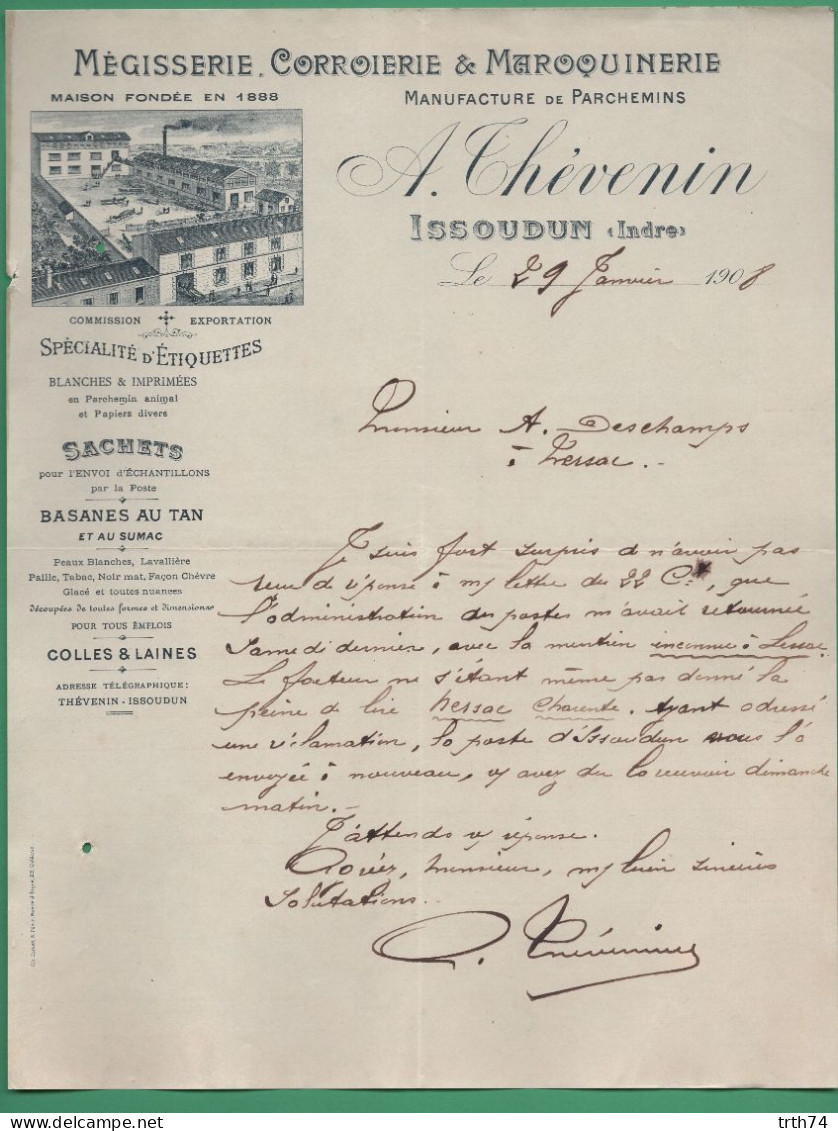 MÉGISSERIE, CORROIERIE & MAROQUINERIE
MAISON FONDÉE EN 1888
MANUFACTURE DE PARCHEMINS
A. Thévenin
ISSOUDUN (Indre)
Le 29 Janvier 1908
COMMISSION EXPORTATION
SPÉCIALITÉ D'ÉTIQUETTES
BLANCHES & IMPRIMÉES
en Parchemin animal
et Papiers divers
SACHETS
pour l'ENVOI d'ÉCHANTILLONS
par la Poste
BASANES AU TAN
ET AU SUMAC
Peaux Blanches, Lavallière
Paille, Tabac, Noir mat, Façon Chèvre
Glacé et toutes nuances
découpées de toutes formes et dimensions
POUR TOUS EMPLOIS
COLLES & LAINES
ADRESSE TÉLÉGRAPHIQUE :
THÉVENIN - ISSOUDUN
Monsieur A. Deschamps
à Nersac.
Je suis fort surpris d n'avoir pas
reçu de réponse à m/ lettre du 22 Ct, que
l'administration des postes m'avait retournée
Samedi dernier, avec la mention inconnu à Lessac.
Le facteur ne s'étant même pas donné la
peine de lire Nersac Charente. Ayant adressé
une réclamation, la poste d'Issoudun vous l'a
envoyée à nouveau, v/ avez du la recevoir dimanche
matin.
J'attends v/ réponse.
Croyez, Monsieur, m/ bien sincères
Salutations.
A. Thévenin
trth74